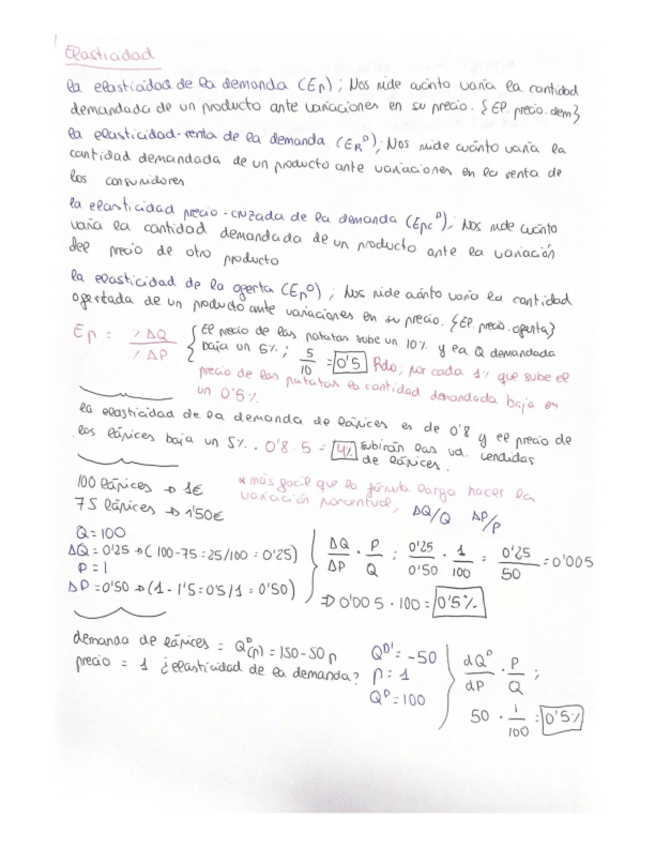 Elasticidad
la elasticidad de la demanda (Ep); Nos mide cuánto varía la cantidad
demandada de un producto ante variaciones en su precio. {EP. precio. dem}
la elasticidad-renta de la demanda (E_R^D), Nos mide cuánto varía la
cantidad demandada de un producto ante variaciones en la renta de
los consumidores
la elasticidad precio-cruzada de la demanda (Epc^D), Nos mide cuánto
varía la cantidad demandada de un producto ante la variación
del precio de otro producto
la elasticidad de la oferta (Ep^O); Nos mide cuánto varía la cantidad
ofertada de un producto ante variaciones en su precio. {EP. precio. oferta}
Ep = % ΔQ / % ΔP { El precio de las patatas sube un 10% y la Q demandada
baja un 5%; 5/10 = 0'5 Rdo, por cada 1% que sube el
precio de las patatas la cantidad demandada baja en
un 0'5%
la elasticidad de la demanda de lápices es de 0'8 y el precio de
los lápices baja un 5%. 0'8 · 5 = 4% subirán las ud. vendidas
de lápices.
100 lápices → 1€
75 lápices → 1'50€
* más fácil que la fórmula larga hacer la
variación porcentual, ΔQ/Q ΔP/P
Q = 100
ΔQ = 0'25 → (100-75 = 25/100 = 0'25)
P = 1
ΔP = 0'50 → (1 - 1'5 = 0'5/1 = 0'50)
ΔQ/ΔP · P/Q ; 0'25/0'50 · 1/100 = 0'25/50 = 0'005
⇒ 0'005 · 100 = 0'5%
demanda de lápices = Q^D(p) = 150 - 50p
precio = 1 ¿elasticidad de la demanda?
Q^D' = -50
p = 1
Q^D = 100
dQ^D/dP · P/Q ;
50 · 1/100 = 0'5%